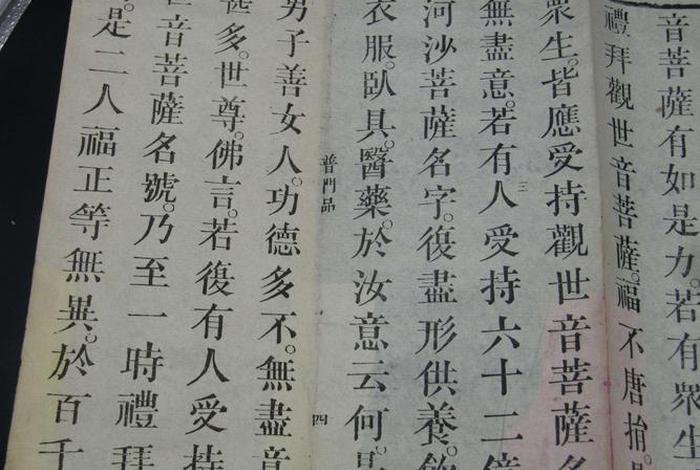 音菩薩有如是力。若有衆生
禮拜觀世音菩薩。福不唐捐。是
衆生。皆應受持觀世音菩薩名
無盡意。若有人受持六十二億
三
河沙菩薩名字。復盡形供養。飲
衣服。臥具。醫藥。於汝意云何。是
普門品
四
男子善女人。功德多不。無盡意
甚多。世尊。佛言。若復有人受持
世音菩薩名號。乃至一時禮拜
。是二人福正等無異。於百千